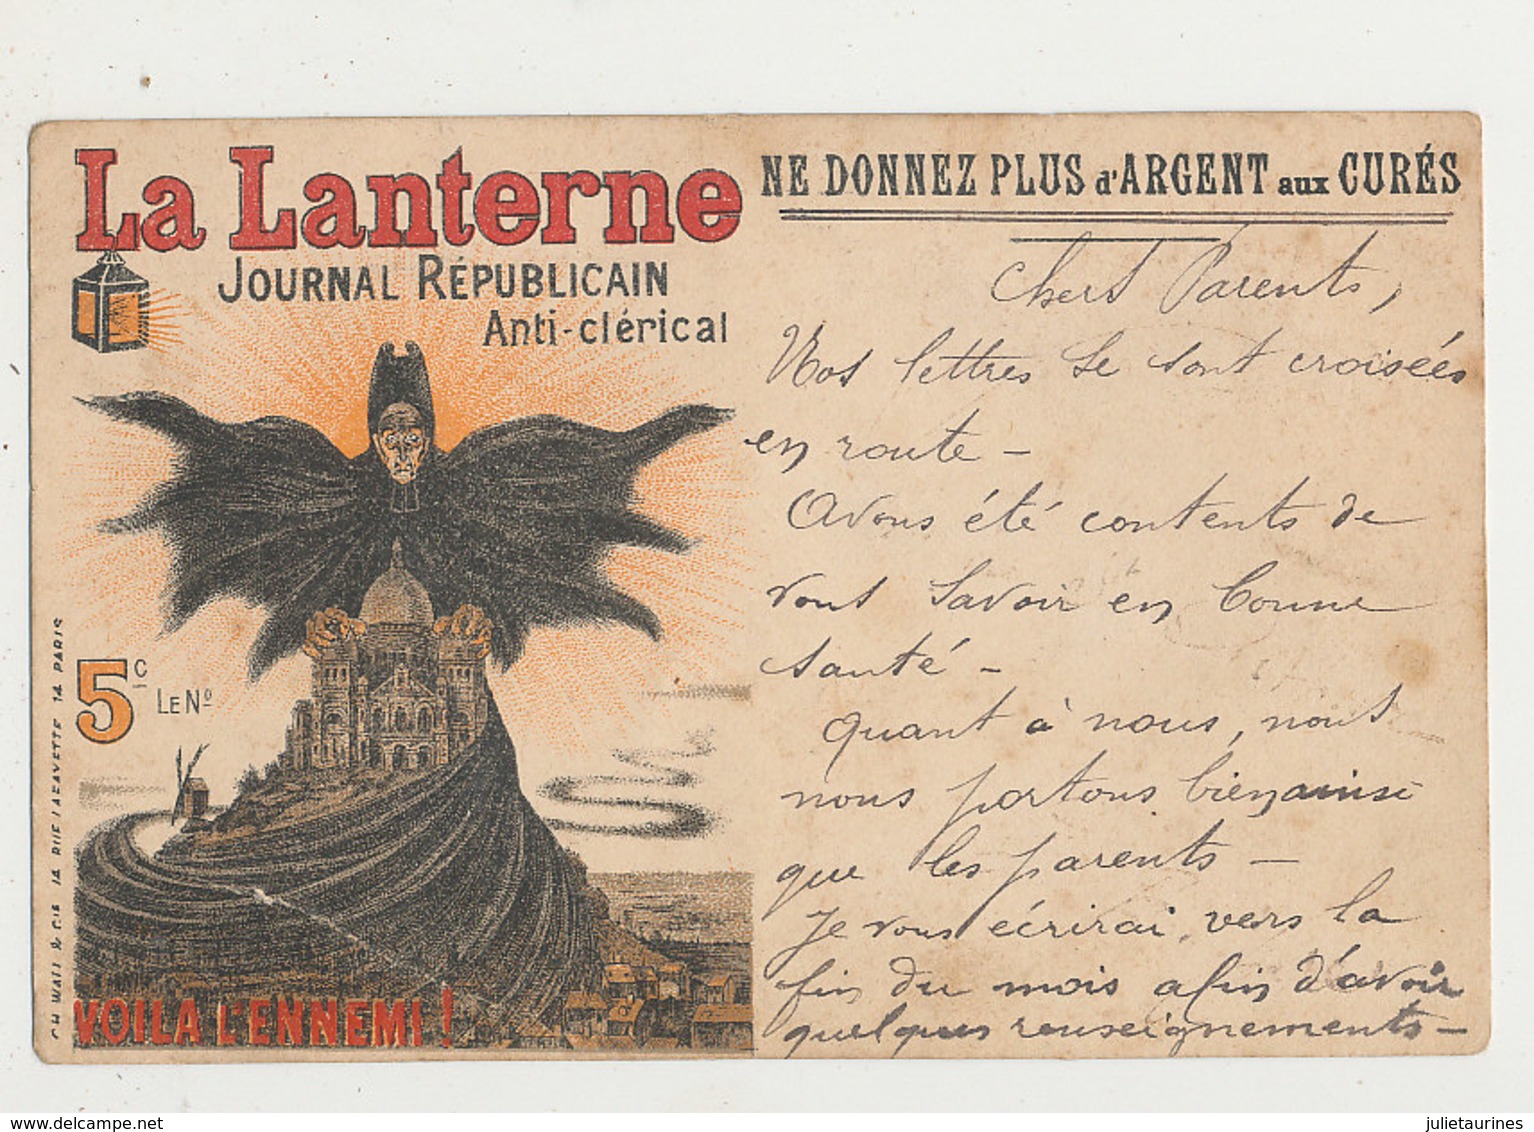 La Lanterne
JOURNAL RÉPUBLICAIN
Anti-clérical
5c LE No
VOILA L'ENNEMI !
CH WALL & CIE 14 RUE LAFAYETTE 14 PARIS
NE DONNEZ PLUS d'ARGENT aux CURÉS
Chers Parents,
Nos lettres se sont croisées
en route -
Avons été contents de
vous savoir en bonne
santé -
quant à nous, nous
nous portons bien ainsi
que les parents -
Je vous écrirai vers la
fin du mois afin d'avoir
quelques renseignements -
delcampe.net
julietaurines